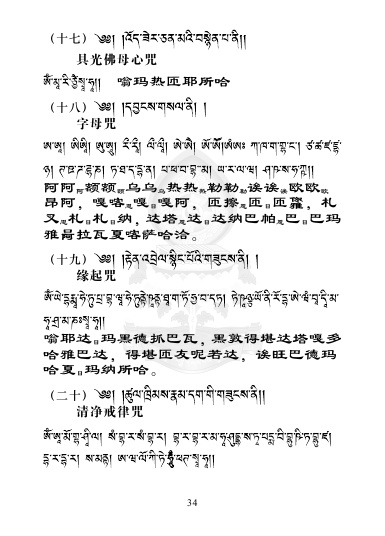 （十七）༄༅། །འོད་ཟེར་ཅན་མའི་བསྙེན་པ་ནི།།
具光佛母心咒
ཨོཾ་མཱ་རི་ཙྱཻ་སྭཱ་ཧཱ།། 嗡玛热匝耶所哈
（十八）༄༅། །དབྱངས་གསལ་ནི། །
字母咒
ཨ་ཨཱ། ཨི་ཨཱི། ཨུ་ཨཱུ། རྀ་རཱྀ། ལྀ་ལཱྀ། ཨེ་ཨཻ། ཨོ་ཨཽ་ཨཾ་ཨཿ ཀ་ཁ་ག་གྷ་ང་། ཙ་ཚ་ཛ་ཛྷ་
ཉ། ཊ་ཋ་ཌ་ཌྷ་ཎ། ཏ་ཐ་ད་དྷ་ན། པ་ཕ་བ་བྷ་མ། ཡ་ར་ལ་ཝ། ཤ་ཥ་ས་ཧ་ཀྵ།།
阿阿阿额额额乌乌乌热热热勒勒勒诶诶诶欧欧欧
昂阿，嘎喀忍嘎目嘎阿，匝擦忍匝目匝䍲，札
叉忍札目札纳，达塔忍达目达纳巴帕忍巴目巴玛
雅局拉瓦夏喀萨哈洽。
（十九）༄༅། །རྟེན་འབྲེལ་སྙིང་པོའི་གཟུངས་ནི། །
缘起咒
ཨོཾ་ཡེ་དྷརྨཱ་ཧེ་ཏུ་པྲ་བྷ་ཝཱ་ཧེ་ཏུནྟེ་ཥཱནྟ་ཐཱ་ག་ཏོ་ཧྱ་བ་དཏ། ཏེ་ཥཱཉྩ་ཡོ་ནི་རོ་དྷ་ཨེ་ཝཾ་བཱ་དཱི་མ་
ཧཱ་ཤྲ་མ་ཎཿསྭཱ་ཧཱ།།
嗡耶达目玛黑德抓巴瓦，黑敦得堪达塔嘎多
哈雅巴达，得堪匝友呢若达，诶旺巴德玛
哈夏目玛纳所哈。
（二十）༄༅། །ཚུལ་ཁྲིམས་རྣམ་དག་གི་གཟུངས་ནི།།
清净戒律咒
ཨོཾ་ཨཱ་མོ་གྷ་ཤཱི་ལ། སཾ་བྷ་ར་སཾ་བྷ་ར། བྷ་ར་བྷ་ར་མ་ཧཱ་ཤུདྡྷ་ས་ཏྭ་པདྨ་བི་བྷཱུ་ཥི་ཏ་བྷུ་ཛ།
དྷ་ར་དྷ་ར། ས་མནྟ། ཨ་ཝ་ལོ་ཀི་ཏེ་ཧཱུྃ་ཕཊ་སྭཱ་ཧཱ།།
34